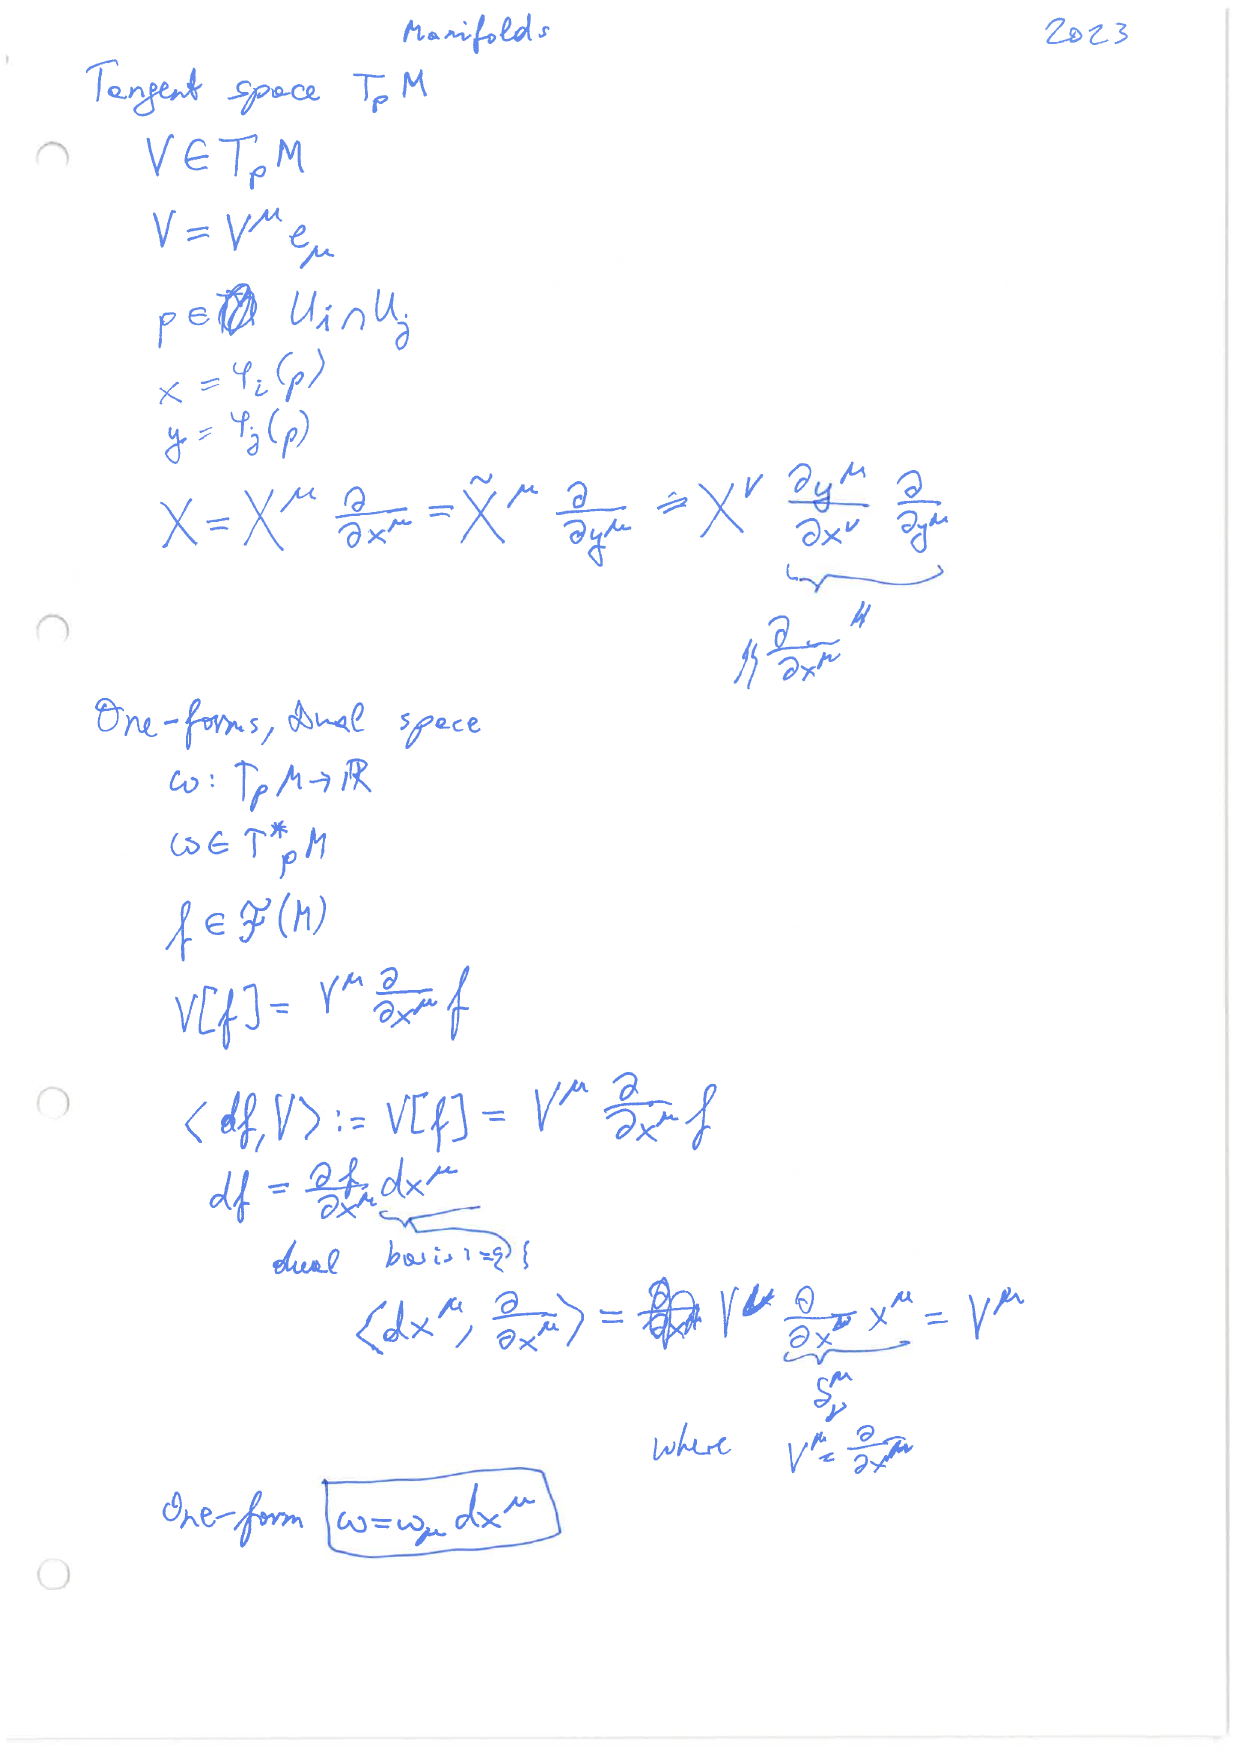 Manifolds 2023
Tangent space T_p M
V ∈ T_p M
V = V^μ e_μ
p ∈ U_i ∩ U_j
x = φ_i(p)
y = φ_j(p)
X = X^μ ∂/∂x^μ = X̃^μ ∂/∂y^μ = X^ν ∂y^μ/∂x^ν ∂/∂y^μ
"∂/∂x^μ"
One-forms, Dual space
ω: T_p M → ℝ
ω ∈ T*_p M
f ∈ ℱ(M)
V[f] = V^μ ∂/∂x^μ f
<df, V> := V[f] = V^μ ∂/∂x^μ f
df = ∂f/∂x^μ dx^μ
dual basis
<dx^μ, ∂/∂x^μ> = V^ν ∂/∂x^ν x^μ = V^μ
δ^μ_ν
where V^μ = ∂/∂x^μ
One-form ω = ω_μ dx^μ